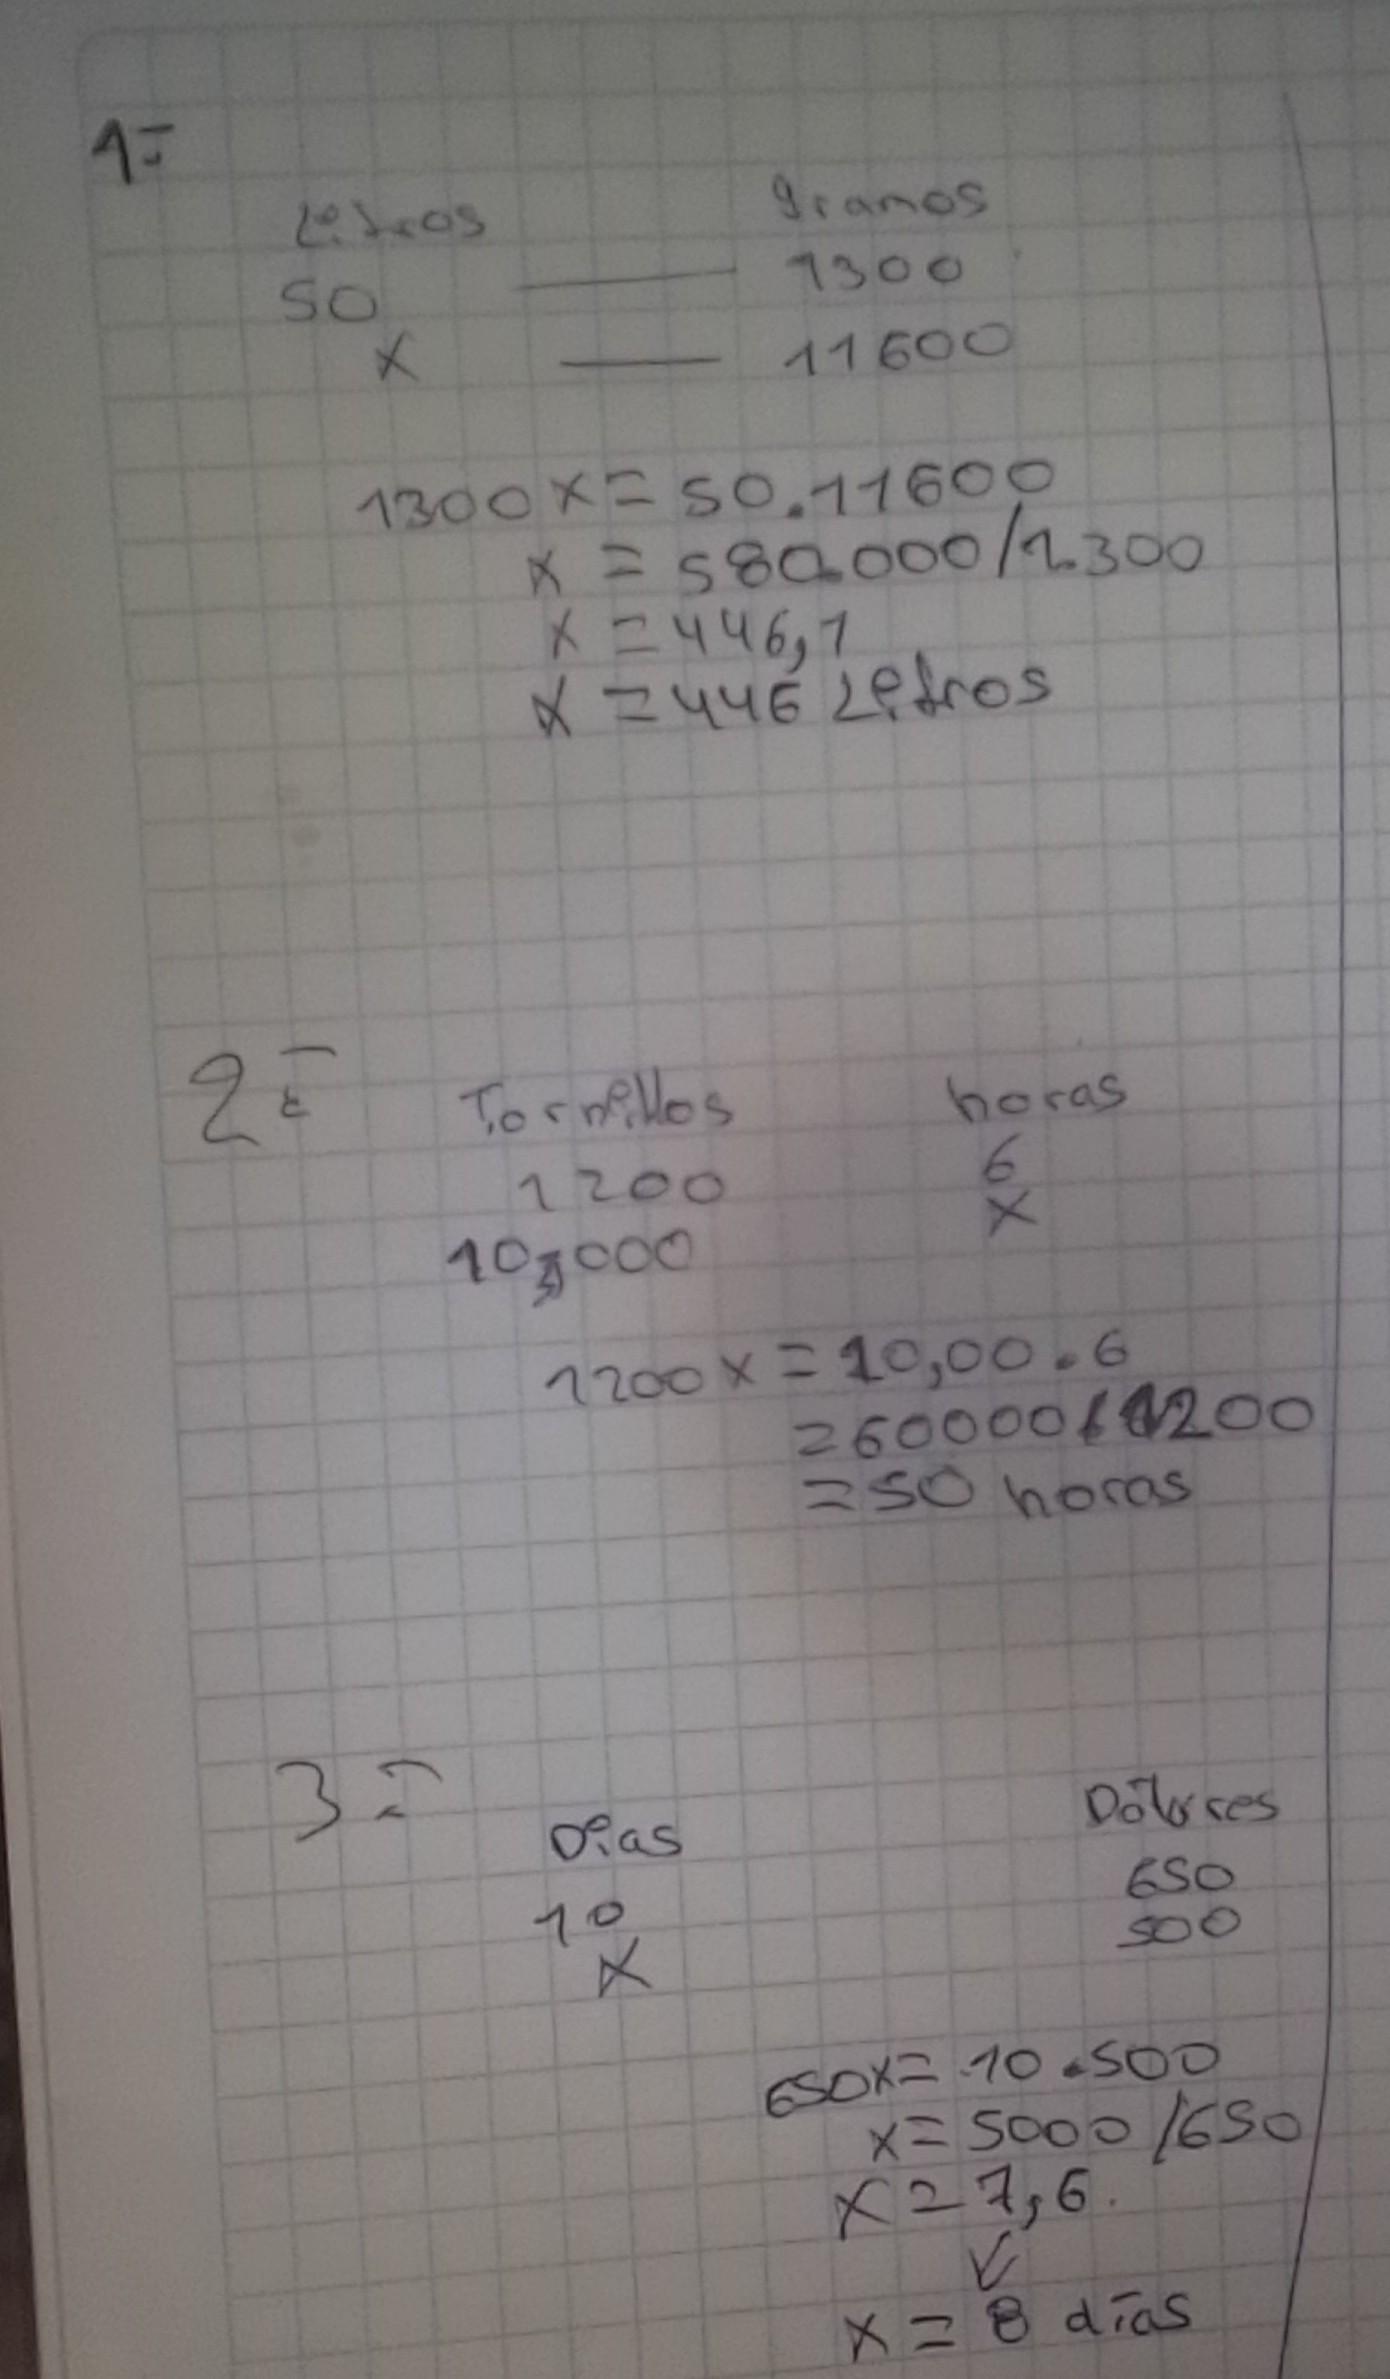 1=
Litros gramos
50 — 1300
x — 11600
1300x = 50.11600
x = 580.000/1.300
x = 446,1
x = 446 Litros
2=
Tornillos horas
1200 6
10,000 x
1200x = 10,00.6
= 60000/1200
= 50 horas
3=
Días Dólares
10 650
x 500
650x = 10.500
x = 5000/650
x = 7,6.
x = 8 días